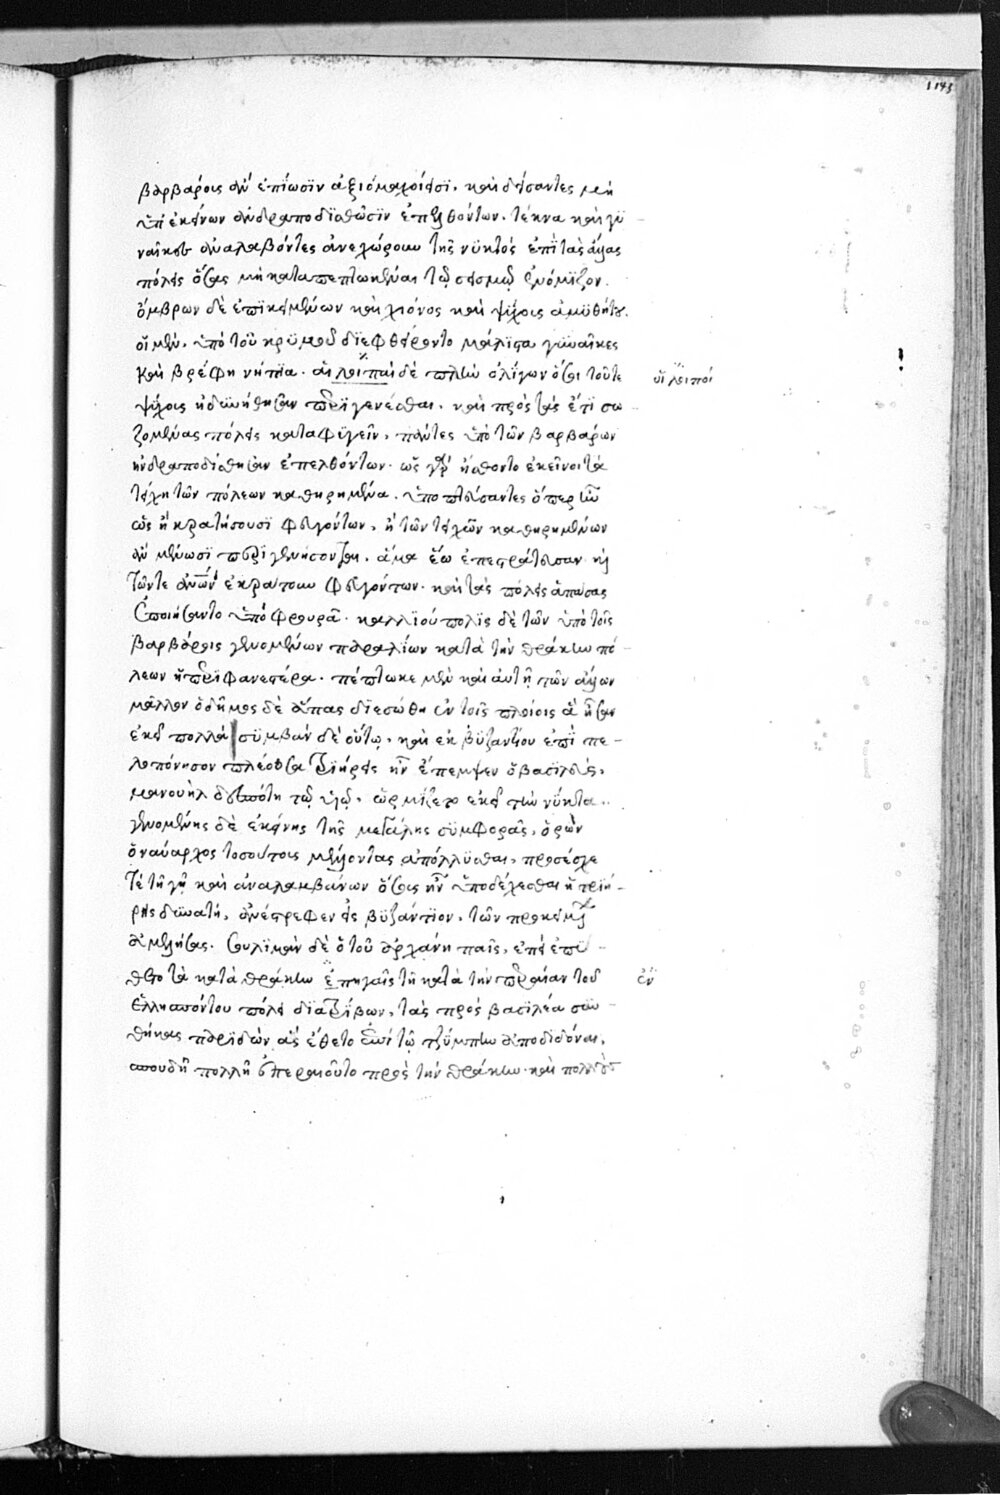 1143
βαρβάροις ἂν ἐπίωσϊν ἀξιόμαχοί εἰσϊ. καὶ δείσαντες μὴ
ὑπ' ἐκείνων ἀνδραποδϊσθῶσϊν ἐπελθόντων. τέκνα καὶ γϋ-
ναῖκας ἀναλαβόντες ἀνεχώρουν τῆς νϋκτὸς ἐπῒ τὰς ἄλλας
πόλεις ὅσας μὴ καταπεπτωκέναι τῷ σεισμῷ ἐνόμϊζον.
ὄμβρων δὲ ἐπϊκειμένων καὶ χιόνος καὶ ψύχοις ἀμϋθήτου.
οἵ μὲν, ὑπὸ τοῦ κρϋμοῦ διεφθείροντο μάλϊστα γυναῖκες
καὶ βρέφη νήπϊα. αἱ λοιπαὶ δὲ πλὴν ὀλίγων ὅσοι τοῦτε οἱ λοιποί
ψύχοις ἠδυνήθησαν περϊγενέσθαι. καὶ πρὸς τὰς ἔτϊ σω-
ζομένας πόλεις καταφϋγεῖν, πάντες ὑπὸ τῶν βαρβάρων
ἠνδραποδίσθησαν ἐπελθόντων. ὡς γὰρ ᾔσθοντο ἐκεῖνοι τὰ
τείχη τῶν πόλεων καθῃρημένα. ὑποπτεύσαντες ὅπερ ἦν
ὡς ἢ κρατήσουσϊ φευγόντων, ἢ τῶν τειχῶν καθῃρημένων
ἂν μένωσϊ περϊγενήσονται. ἅμα ἕῳ ἐπεστράτευσαν. καὶ
τῶντε αὐτῶν ἐκράτουν φευγόντων. καὶ τὰς πόλεις ἁπάσας
ἐποιήσαντο ὑπὸ φρουρᾶ. καλλιούπολϊς δὲ τῶν ὑπὸ τοῖς
βαρβάροις γενομένων παραλίων κατὰ τὴν θράκην πό-
λεων ἡ περϊφανεστέρα. πέπτωκε μὲν καὶ αὐτὴ τῶν ἄλλων
μᾶλλον ὁ δῆμος δὲ ἅπας διεσώθη ἐν τοῖς πλοίοις ἃ ἦσαν
ἐκεῖ πολλὰ συμβὰν δὲ οὕτω. καὶ ἐκ βϋζαντίου ἐπῒ πε-
λοπόνησον πλέουσα τριήρης ἣν ἔπεμψεν ὁ βασϊλεὺς,
μανουὴλ δεσπότη τῷ ὑιῷ. ὡρμίζετο ἐκεῖ τὴν νύκτα..
γενομένης δὲ ἐκείνης τῆς μεγάλης συμφορᾶς, ὁρῶν
ὁ ναύαρχος τοσούτοις μέλλοντας ἀπόλλϋσθαι, προσέσχε
τὲ τῇ γῇ καὶ ἀναλαμβάνων ὅσοις ἦν ὑποδέχεσθαι ἡ τριή-
ρης δυνατή, ἀνέστρεφεν εἰς βϋζάντϊον, τῶν προκειμένων
ἀμελήσας. σουλϊμὰν δὲ ὁ τοῦ ὀρχάνη παῖς, ἐπεὶ ἐπύ-
θετο τὰ κατὰ θράκην ἐπηγαῖς τῇ κατὰ τὴν περαίαν τοῦ ἐν
ἑλλησπόντου πόλει διατρίβων, τὰς πρὸς βασιλέα συν-
θήκας παρϊδὼν ἃς ἔθετο ἐπὶ τῷ τζύμπην ἀποδιδόναι,
σπουδῇ πολλῇ ἐπεραιοῦτο πρὸς τὴν θράκην. καὶ πολλοὺς